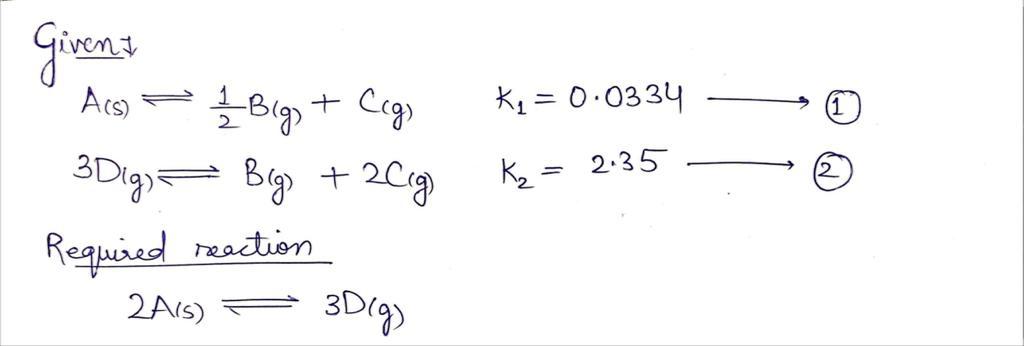 Given:
A(s) ⇌ 1/2 B(g) + C(g) K₁ = 0.0334 ⟶ ①
3D(g) ⇌ B(g) + 2C(g) K₂ = 2.35 ⟶ ②
Required reaction
2A(s) ⇌ 3D(g)